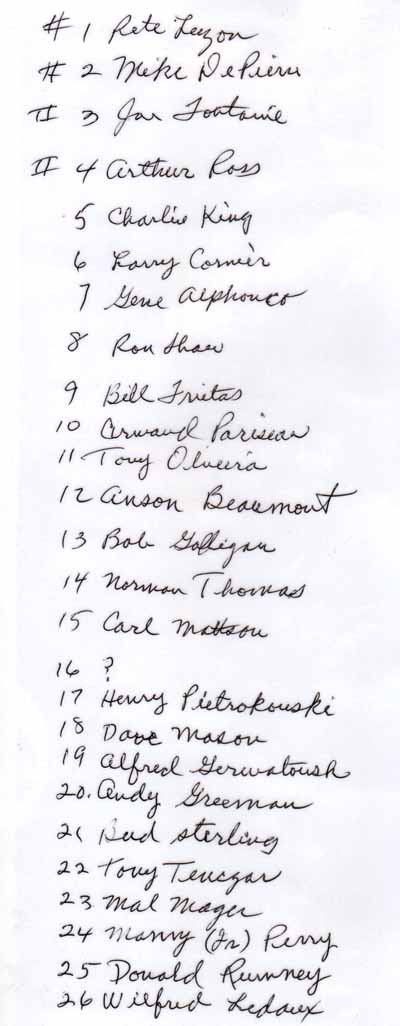 # 1 Pete Leyon
# 2 Mike DePieru
# 3 Jar Fontaine
# 4 Arthur Ross
5 Charlie King
6 Larry Cormier
7 Gene Alphonco
8 Ron Shaw
9 Bill Fritas
10 Armand Pariseau
11 Tony Oliveira
12 Anson Beaumont
13 Bob Galligan
14 Norman Thomas
15 Carl Mattson
16 ?
17 Henry Pietrokouski
18 Dave Mason
19 Alfred
20. Andy Greeman
21 Bud Sterling
22 Tony Tenczar
23 Mal Mager
24 Manny (Jr) Perry
25 Donald Rumney
26 Wilfred Ledoux